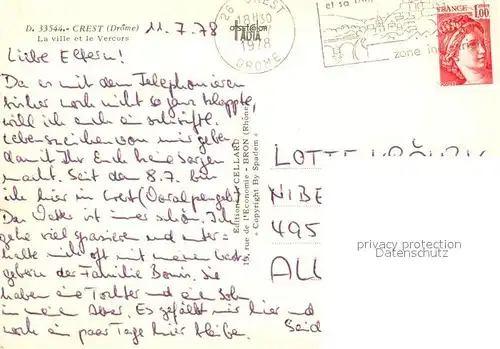 D. 33544.- CREST (Drôme)
La ville et le Vercors
11.7.78
Liebe Eltern!
Da es mit dem Telephonieren
sicher noch nicht so ganz klappte,
will ich euch ein schriftl.
Lebenszeichen von mir geben
damit Ihr Euch keine Sorgen
macht. Seit dem 8.7. bin
ich hier in Crest (Voralpengebiet)
Das Wetter ist immer schön. Ich
gehe viel spazieren und unter-
halte mich oft mit meinen Gast-
gebern der Familie Bonin. Sie
haben eine Tochter und ein Sohn
in meinem Alter. Es gefällt mir hier und
noch ein paar Tage hier bleiben.
Seid
Editions CELLARD
19, rue de l'Economie - BRON (Rhône)
« Copyright By Spadem »
26 CREST
18H30
1978
DROME
et sa
zone in
FRANCE 1,00
LOTTE
NIBE
495
ALL
privacy protection
Datenschutz